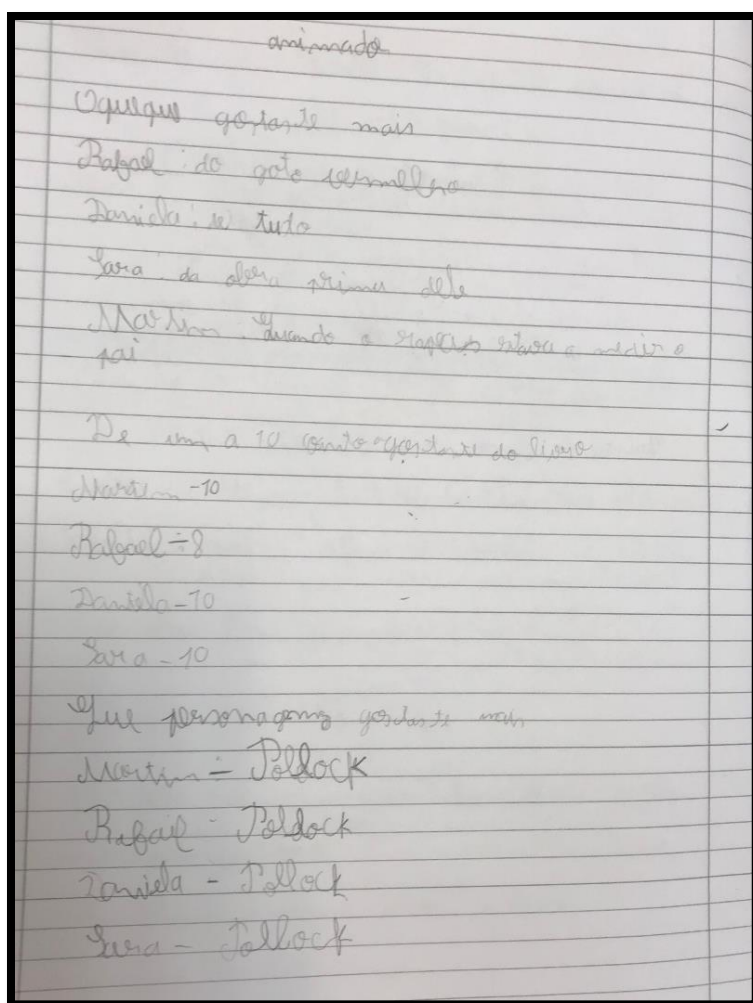 animado
Oquequ gostaste mais
Rafael: do goto vermelho
Daniela: de tuto
Sara: da obra prima dele
Martim: Quando o estava a medir o
pai
De um a 10 conto gostaste do livro
Martim -10
Rafael - 8
Daniela - 10
Sara - 10
Que personagens gostaste mais
Martim - Poldock
Rafael - Poldock
Daniela - Pollock
Sara - Pollock